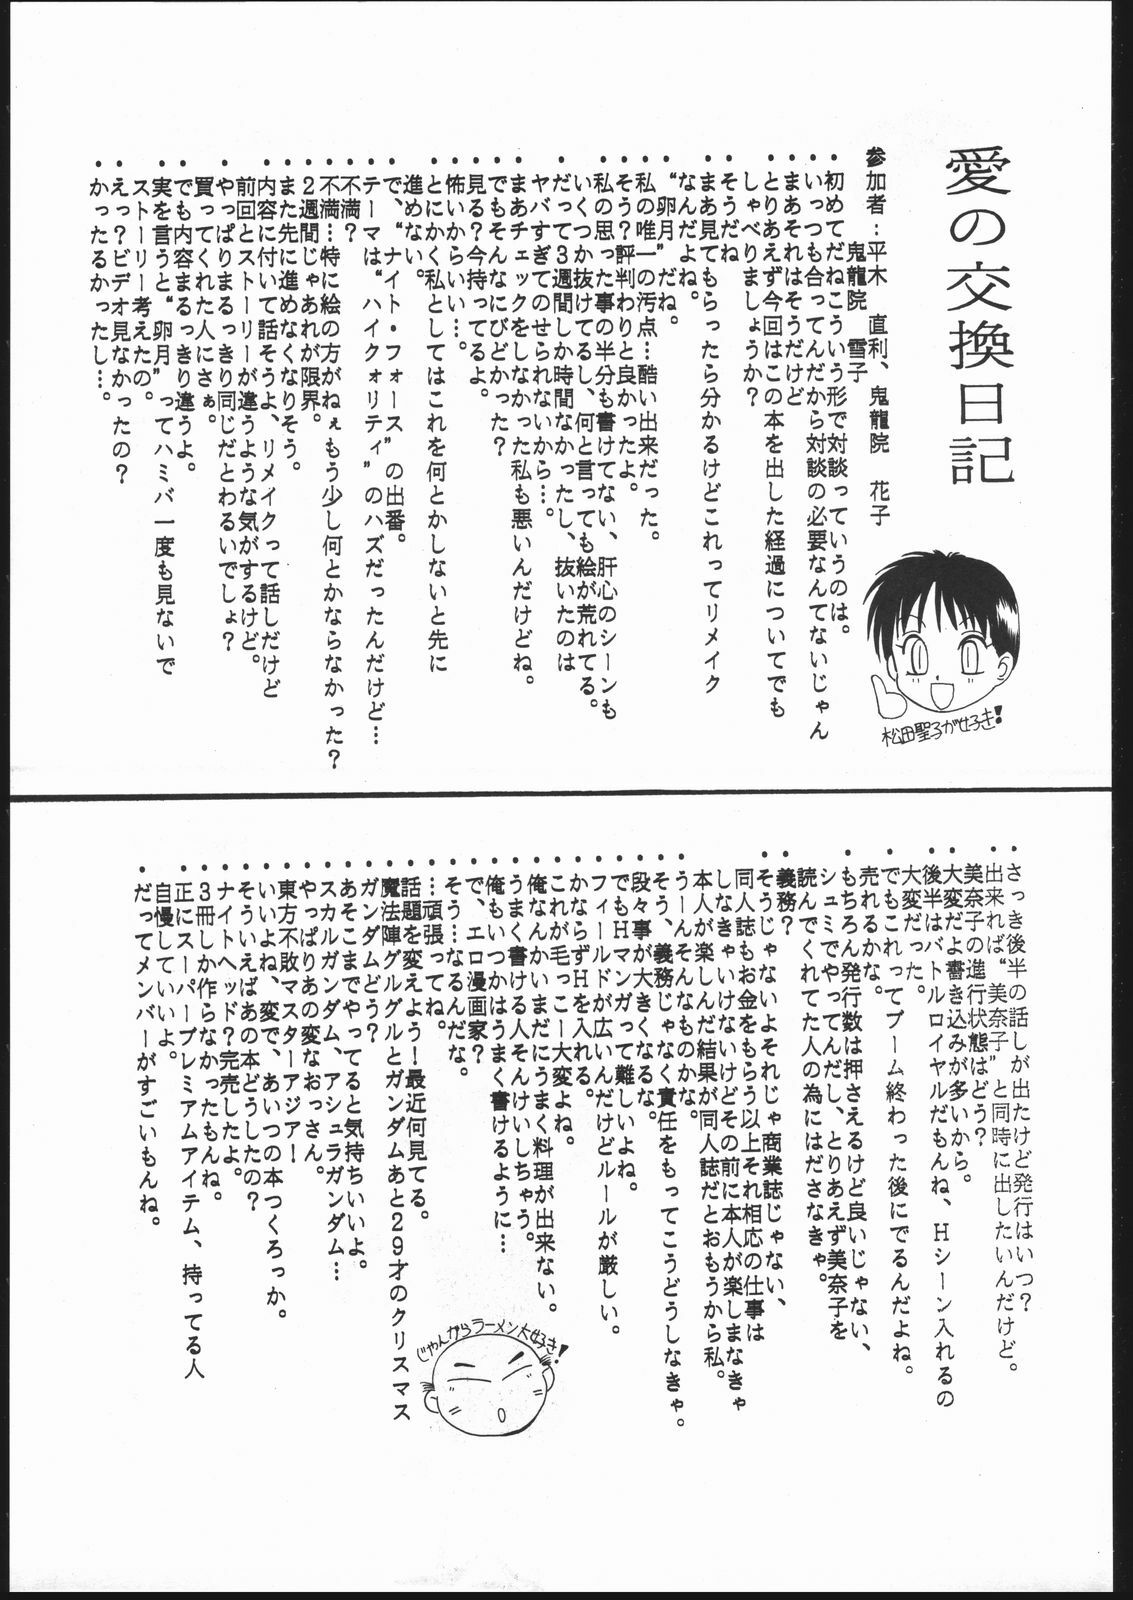 愛の交換日記
参加者：平木　直利、鬼龍院　花子
鬼龍院　雪子
・初めてだねこういう形で対談っていうのは。
・いっつも合ってんだから対談の必要なんてないじゃん
・まあそれはそうだけど
・とりあえず今回はこの本を出した経過についてでも
しゃべりましょうか？
・そうだね
・まあ見てもらったら分かるけどこれってリメイク
なんだよね。
・“卯月”だね。
・私の唯一の汚点…酷い出来だった。
・そう？評判わりと良かったよ。
・私の思った事の半分も書けてない、肝心のシーンも
いくつか抜けてるし、何と言っても絵が荒れてる。
・だって３週間しか時間なかったし、抜いたのは
ヤバすぎてのせられないから…。
・まあチェックをしなかった私も悪いんだけどね。
・でもそんなにひどかった？
・見る？今持ってるよ。
・怖いからいい…。
・とにかく私としてはこれを何とかしないと先に
進めない。
・で、“ナイト・フォース”の出番。
・テーマは“ハイクォリティ”のハズだったんだけど…
・不満？
・不満…特に絵の方がねぇもう少し何とかならなかった？
・２週間じゃあれが限界。
・また先に進めなくなりそう。
・内容に付いて話そうよ、リメイクって話しだけど
前回とストーリーが違うような気がするけど。
・やっぱりまるっきり同じだとわるいでしょ？
買ってくれた人にさぁ。
・でも内容まるっきり違うよ。
・実を言うと“卯月”ってハミバ一度も見ないで
ストーリー考えたの。
・えっ？ビデオ見なかったの？
・かったるかったし…。
松田聖子が好き！
・さっき後半の話しが出たけど発行はいつ？
・出来れば“美奈子”と同時に出したいんだけど。
・美奈子の進行状態はどう？
・大変だよ書き込みが多いから。
・後半はバトルロイヤルだもんね、Ｈシーン入れるの
大変だった。
・でもこれってブーム終わった後にでるんだよね。
売れるかな。
・もちろん発行数は押さえるけど良いじゃない、
シュミでやってんだし、とりあえず美奈子を
読んでくれてた人の為にはださなきゃ。
・義務？
・そうじゃないよそれじゃ商業誌じゃない、
同人誌もお金をもらう以上それ相応の仕事は
しなきゃいけないけどその前に本人が楽しまなきゃ
本人が楽しんだ結果が同人誌だとおもうから私。
・うーんそんなものかな。
・そう、義務じゃなく責任をもってこうどうしなきゃ。
・段々事が大きくなるな。
・でもＨマンガって難しいよね。
・フィールドが広いんだけどルールが厳しい。
・かならずＨを入れる。
・これが毛っこー大変よね。
・俺なんかいまだにうまく料理が出来ない。
・うまく書ける人そんけいしちゃう。
・俺もいつかはうまく書けるように…
・で、エロ漫画家？
・そう…なるんだな。
・…頑張ってね。
・話題を変えよう！最近何見てる。
・魔法陣グルグルとガンダムあと２９才のクリスマス
・ガンダムどう？
・あそこまでやってると気持ちいいよ。
・スカルガンダム、アシュラガンダム…
・やっぱりあの変なおっさん。
・東方不敗マスターアジアー！
・いいよね、変で、あいつの本つくろっか。
・そういえばあの本どうしたの？
・ナイトヘッド？完売したよ。
・３冊しか作らなかったもんね。
・正にスーパープレミアムアイテム、持ってる人
自慢していいよ。
・だってメンバーがすごいもんね。
じゃんがらラーメン大好き！